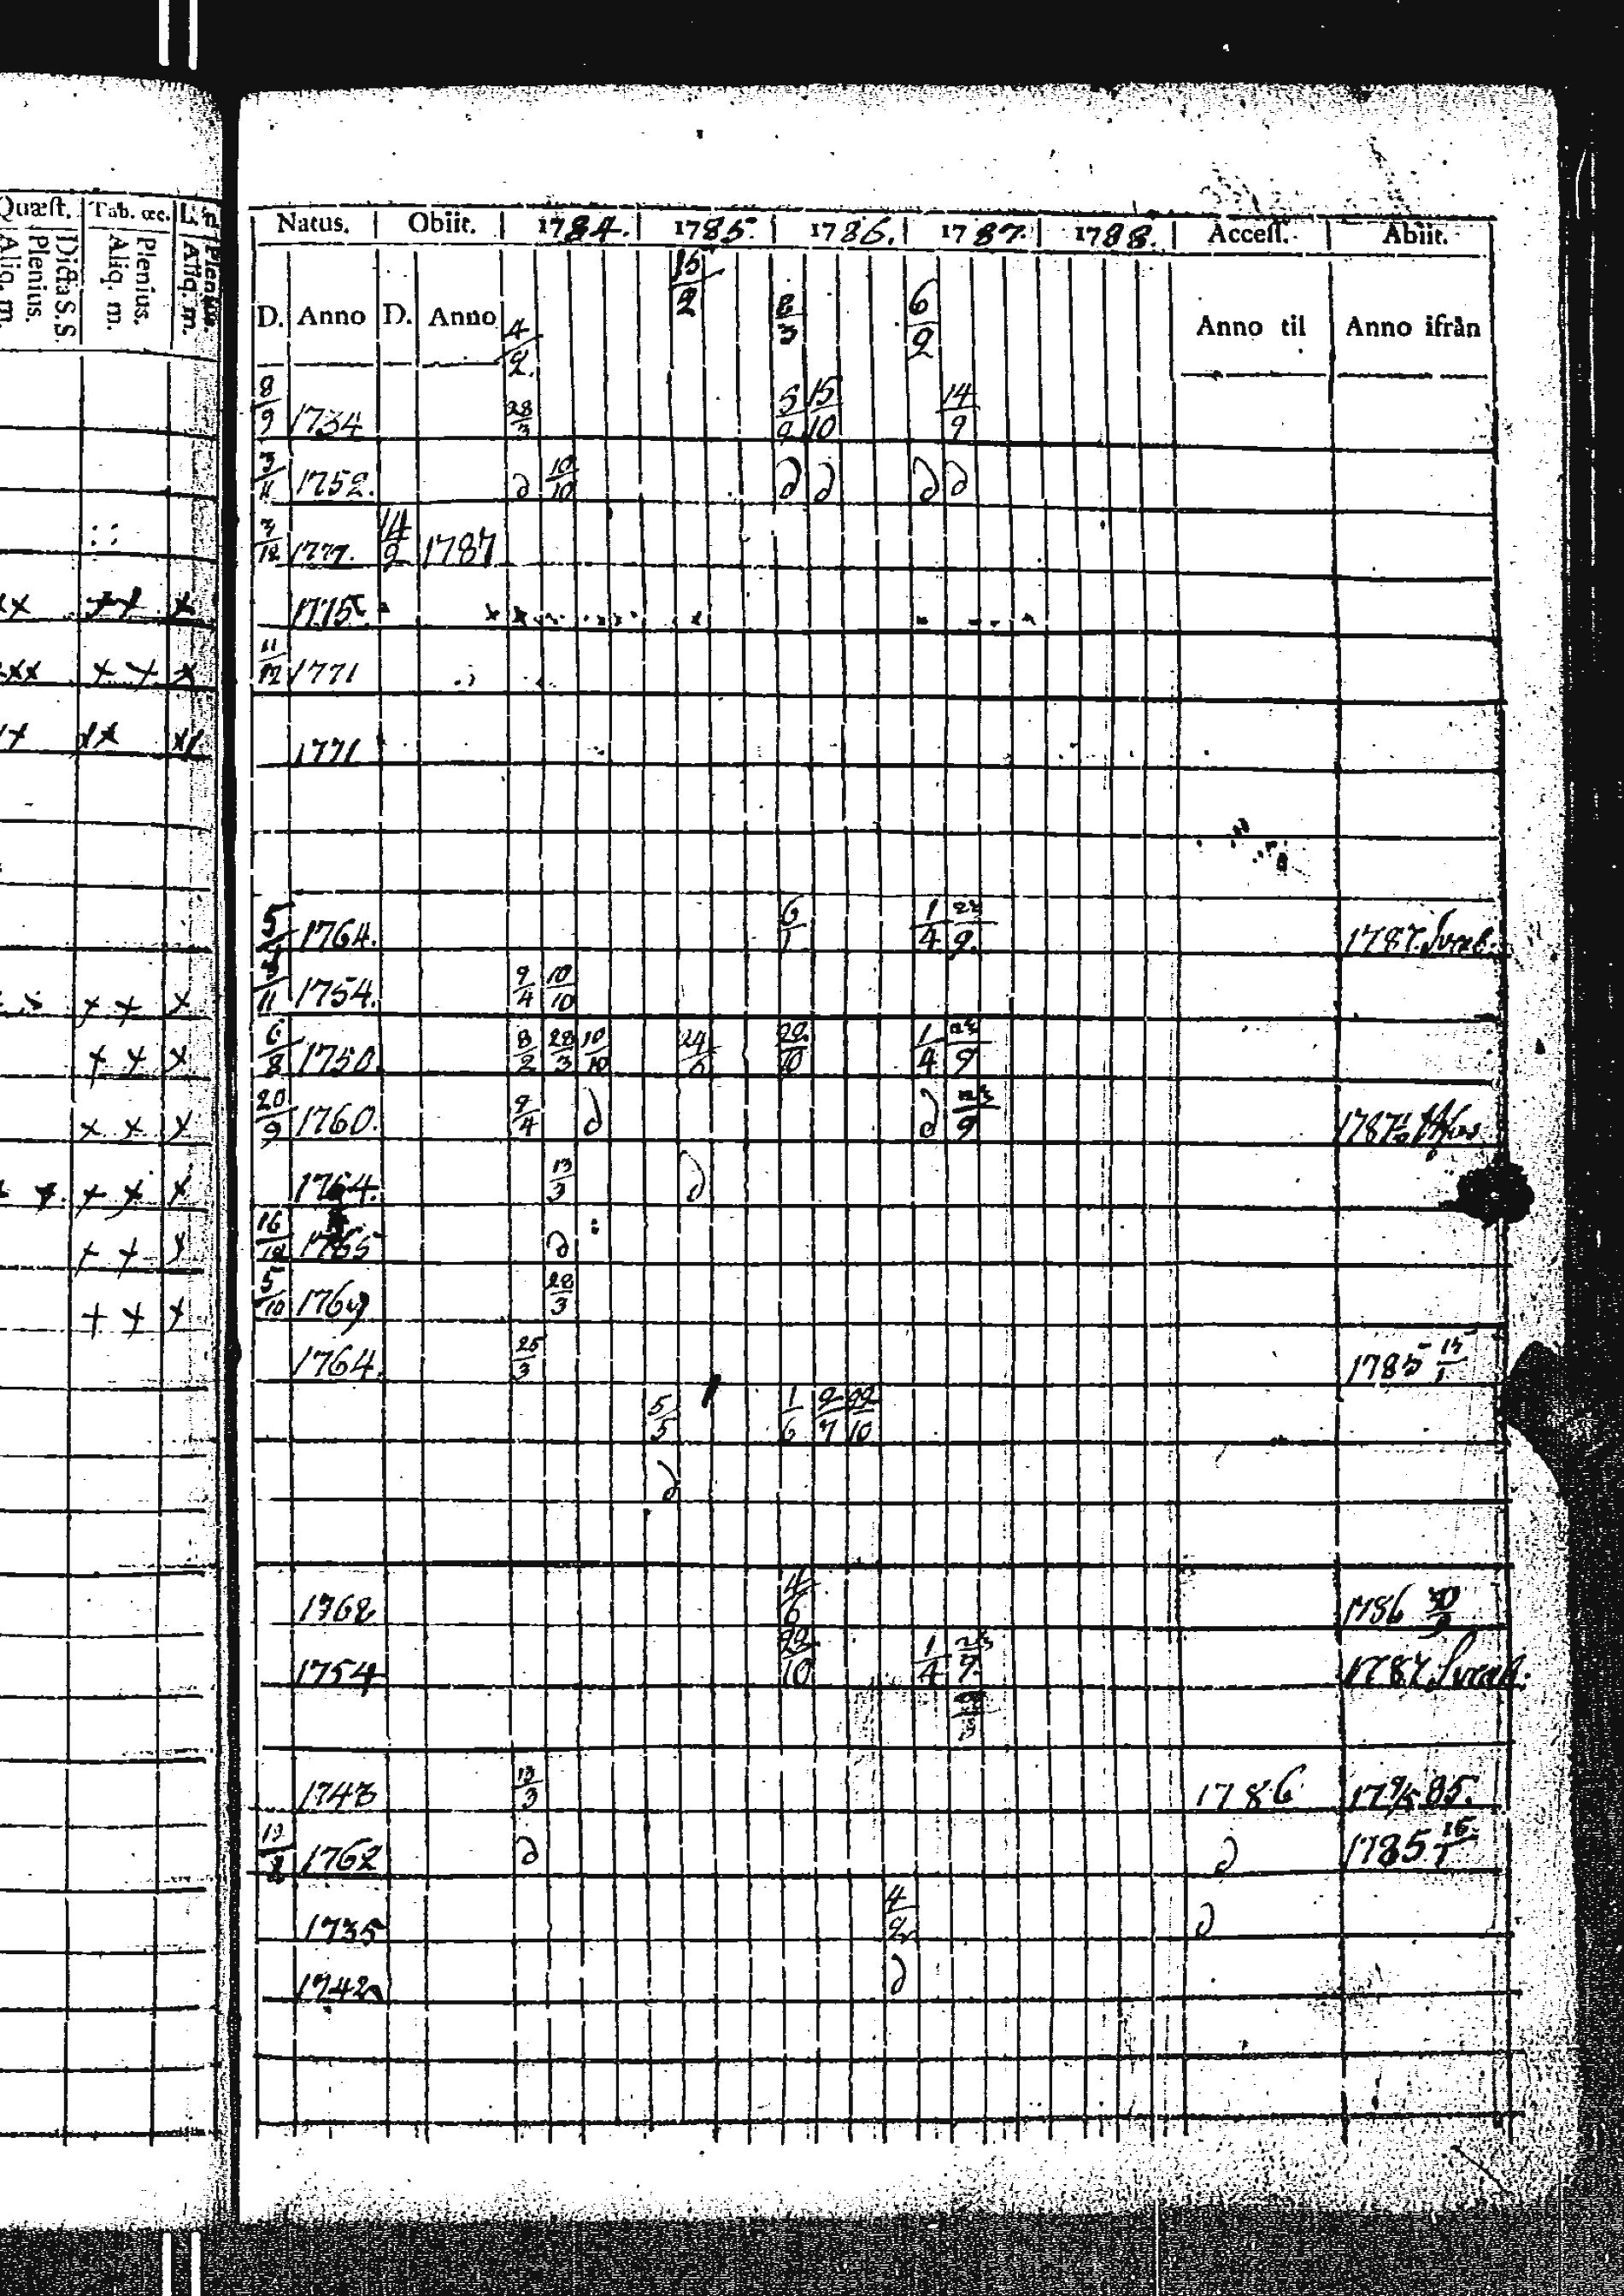 Quæst. Tab. &c. L. n
Dicta S.S. Plenius. Aliq. m. Plenius. Aliq. m. Plenius. Aliq. m.
Natus. Obiit. 1784. 1785. 1786. 1787. 1788. Access. Abiit.
D. Anno D. Anno 4/2. 15/2 8/3 6/2 Anno til Anno ifrån
8/9 1734 28/3 5/9 15/10 14/9
3/11 1752. ∂ 10/10 ∂ ∂ ∂ ∂
: :
3/12 1777. 14/2 1787
xx ++ x 1775
xxx + + x 11/12 1771
xx xx 1771
5/9 1764. 6/1 1/4 23/9. 1787.
+ + x /11 1754. 9/4 10/10
+ + x 6/8 1750. 8/2 28/3 10/10 24/6 22/10 1/4 23/9
x x x 20/9 1760. 9/4 ∂ ∂ 23/9 1787
+ + x 1764. 13/3 ∂
+ + x 16/12 1765 ∂
+ + x 5/10 1769 28/3
1764. 25/3 1785 15/1
5/5 1/6 2/7 22/10
∂
1762 4/6 1786 30/9
1754 22/10 1/4 23/9 1787
1743 13/3 1786 17 9/5 85.
19/8 1762 ∂ ∂ 1785 15/1
1735 4/2 ∂
1742 ∂